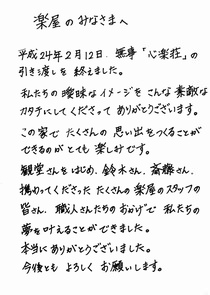 楽屋のみなさまへ
平成24年2月12日、無事「心楽荘」の
引き渡しを終えました。
私たちの曖昧なイメージをこんな素敵な
カタチにしてくださってありがとうございます。
この家でたくさんの思い出をつくることが
できるのがとても楽しみです。
観堂さんをはじめ、鈴木さん、斎藤さん、
携わってくださったたくさんの楽屋のスタッフの
皆さん、職人さんたちのおかげで私たちの
夢を叶えることができました。
本当にありがとうございました。
今後ともよろしくお願いします。